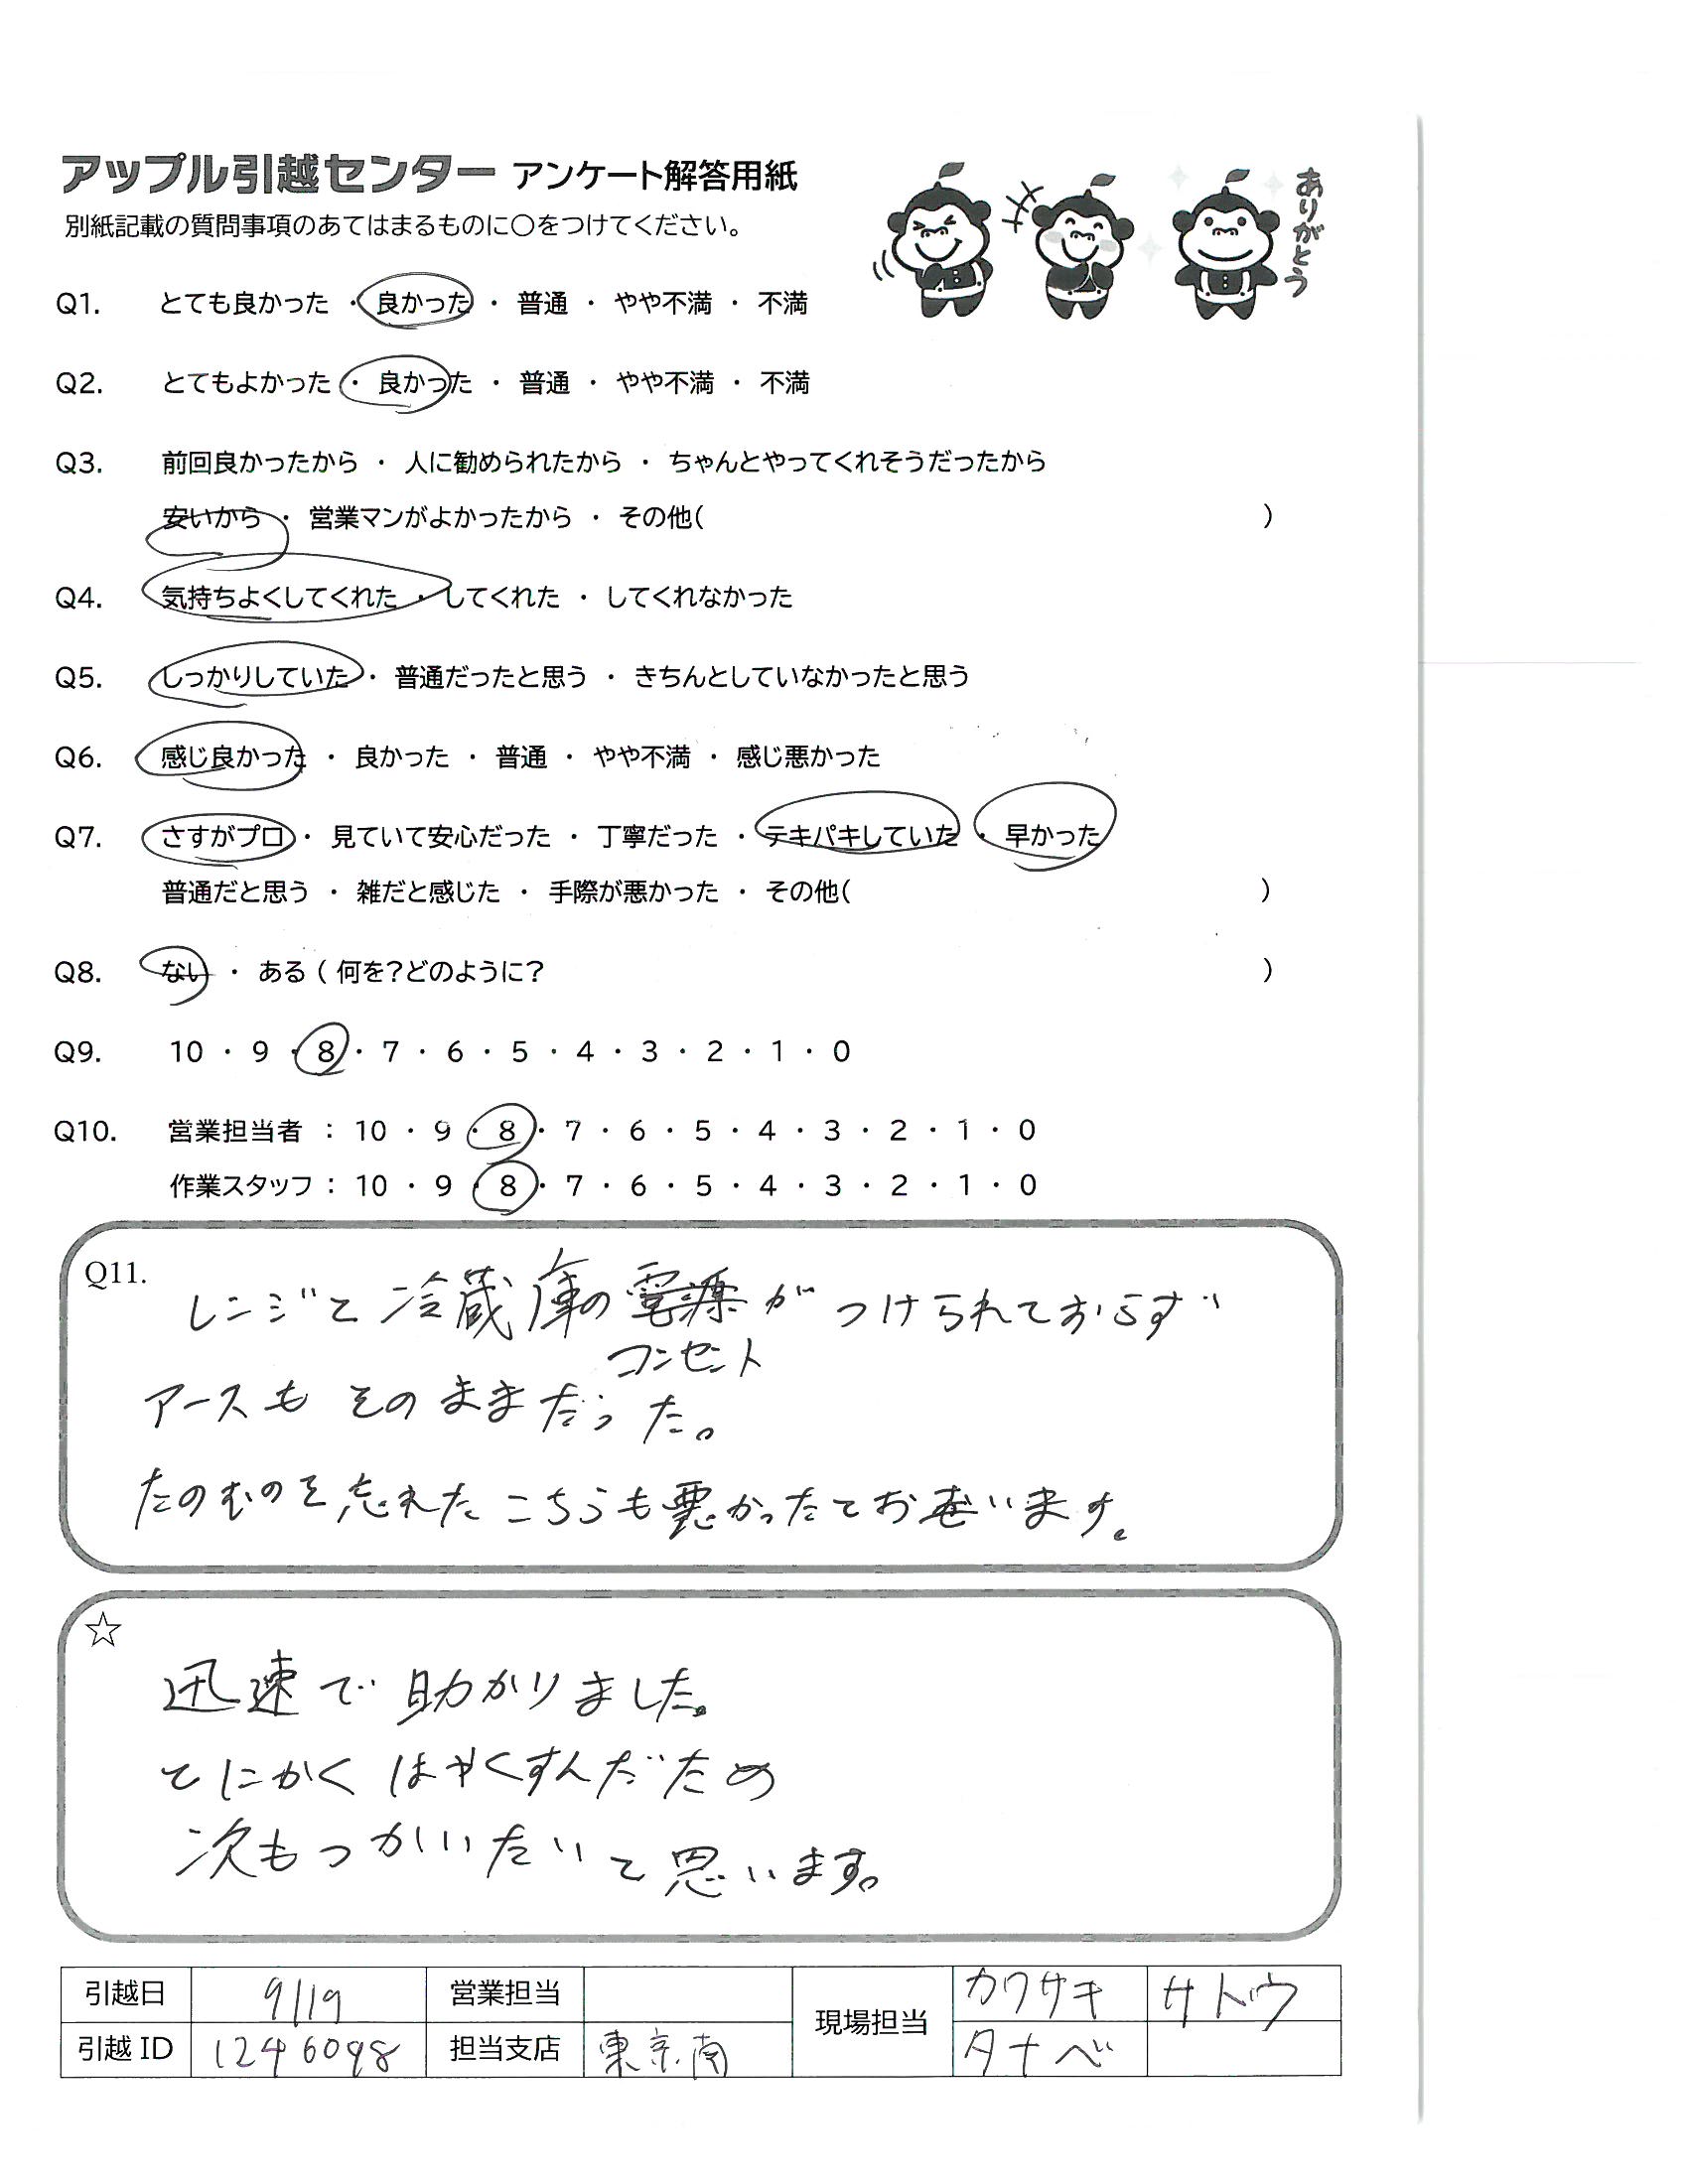 アップル引越センター アンケート解答用紙
別紙記載の質問事項のあてはまるものに○をつけてください。
ありがとう
Q1. とても良かった ・ 良かった ・ 普通 ・ やや不満 ・ 不満
Q2. とてもよかった ・ 良かった ・ 普通 ・ やや不満 ・ 不満
Q3. 前回良かったから ・ 人に勧められたから ・ ちゃんとやってくれそうだったから
安いから ・ 営業マンがよかったから ・ その他( )
Q4. 気持ちよくしてくれた ・ してくれた ・ してくれなかった
Q5. しっかりしていた ・ 普通だったと思う ・ きちんとしていなかったと思う
Q6. 感じ良かった ・ 良かった ・ 普通 ・ やや不満 ・ 感じ悪かった
Q7. さすがプロ ・ 見ていて安心だった ・ 丁寧だった ・ テキパキしていた ・ 早かった
普通だと思う ・ 雑だと感じた ・ 手際が悪かった ・ その他( )
Q8. ない ・ ある ( 何を?どのように? )
Q9. 10 ・ 9 ・ 8 ・ 7 ・ 6 ・ 5 ・ 4 ・ 3 ・ 2 ・ 1 ・ 0
Q10. 営業担当者 : 10 ・ 9 ・ 8 ・ 7 ・ 6 ・ 5 ・ 4 ・ 3 ・ 2 ・ 1 ・ 0
作業スタッフ : 10 ・ 9 ・ 8 ・ 7 ・ 6 ・ 5 ・ 4 ・ 3 ・ 2 ・ 1 ・ 0
Q11.
レンジと冷蔵庫の電源がつけられておらず
コンセント
アースもそのままだった。
たのむのを忘れたこちらも悪かったとお思います。
☆
迅速で助かりました。
とにかくはやくすんだため
次もつかいたいと思います。
引越日 9/19 営業担当 現場担当 カワサキ サトウ
引越ID 1246098 担当支店 東京南 タナベ